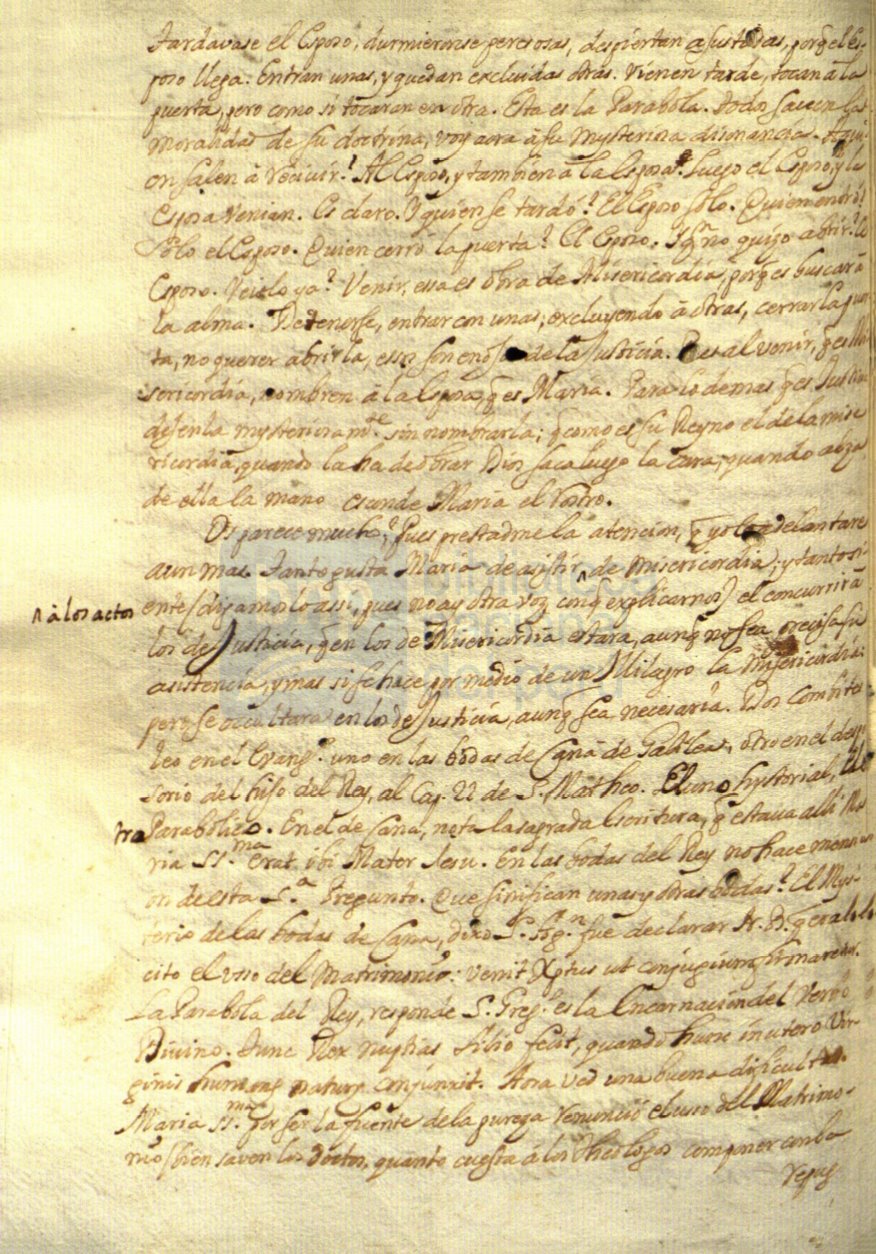 Tardavase el Esposo, durmieronse peresosas, despiertan asustadas, porq̃ el es-
poso llega. Entran unas, y quedan excluidas otras. Vienen tarde, tocan à la
puerta, pero como si tocaran en otra. Esta es la Parabola. Todos saven las
moralidad de su doctrina, voy aora à su mysteriosa disonancia. Aqui-
en salen à recivir? Al Esposo, y tambien à la Esposa. Luego el Esposo, y la
Esposa venian. Es claro. Y quien se tardó? El Esposo solo. Quien entró?
Solo el Esposo. Quien cerró la puerta? El Esposo. Y q.n no quizo abrir? El
Esposo. Veislo ya? Venir, essa es obra de Misericordia, porq̃ es buscar à
la alma. Detenerse, entrar con unas, excluyendo à otras, cerrar la puer-
ta, no querer abrirla, essos son enojos de la Justicia. Pues al venir, q̃ es Mi-
sericordia, nombren à la Esposa, q̃ es Maria. Para lo demas q̃ es Justicia
desenla mysteriosam.te sin nombrarla; q̃ como es su Reyno el de la mise
ricordia, quando la ha de obrar Dios saca luego la cara, quando alza
de ella la mano esconde Maria el rostro.
Os parece mucho? Pues prestadme la atencion, q̃ yo lo adelantare
aun mas. Tanto gusta Maria de asistir ^ de Misericordia; y tanto si-
^ à los actos
ente (digamoslo assi, pues no ay otra voz conq̃ explicarnos) el concurrir à
los de Justicia, q̃ en los de Misericordia estara, aunq̃ no sea precisa su
asistencia, y mas si se hace por medio de un Milagro la Misericordia:
pero se occultara en los de Justicia, aunq̃ sea necesaria. Dos combites
leo en el Evang.o uno en las bodas de Cana de Galilea, otro en el despo
sorio del hijo del Rey, al Cap. 22 de S. Matheo. El uno hystorial, El o
tro Parabolico. En el de Cana, nota la sagrada Escritura, q̃ estava alli Ma
ria SS.ma erat ibi Mater Jesu. En las bodas del Rey no hace menci-
on de esta S.a Pregunto. Que sinifican unas y otras bodas? El Mys-
terio de las bodas de Cana, dixo S. Ag.n fue declarar N. B. q̃ era li
cito el uso del Matrimonio: venit Xptus ut conjugium firmaretur.
La Parabola del Rey, responde S. Greg.o es la Encarnacion del Verbo
Divino. Tunc Rex nuptias filio fecit, quando hunc in utero Vir-
ginis humanæ naturæ conjunxit. Aora ved una buena dificultad.
Maria SS.ma por ser la fuente de la pureza renunció el uso del Matrimo-
nio (bien saven los Doctos, quanto cuesta á los Theologos componer con la